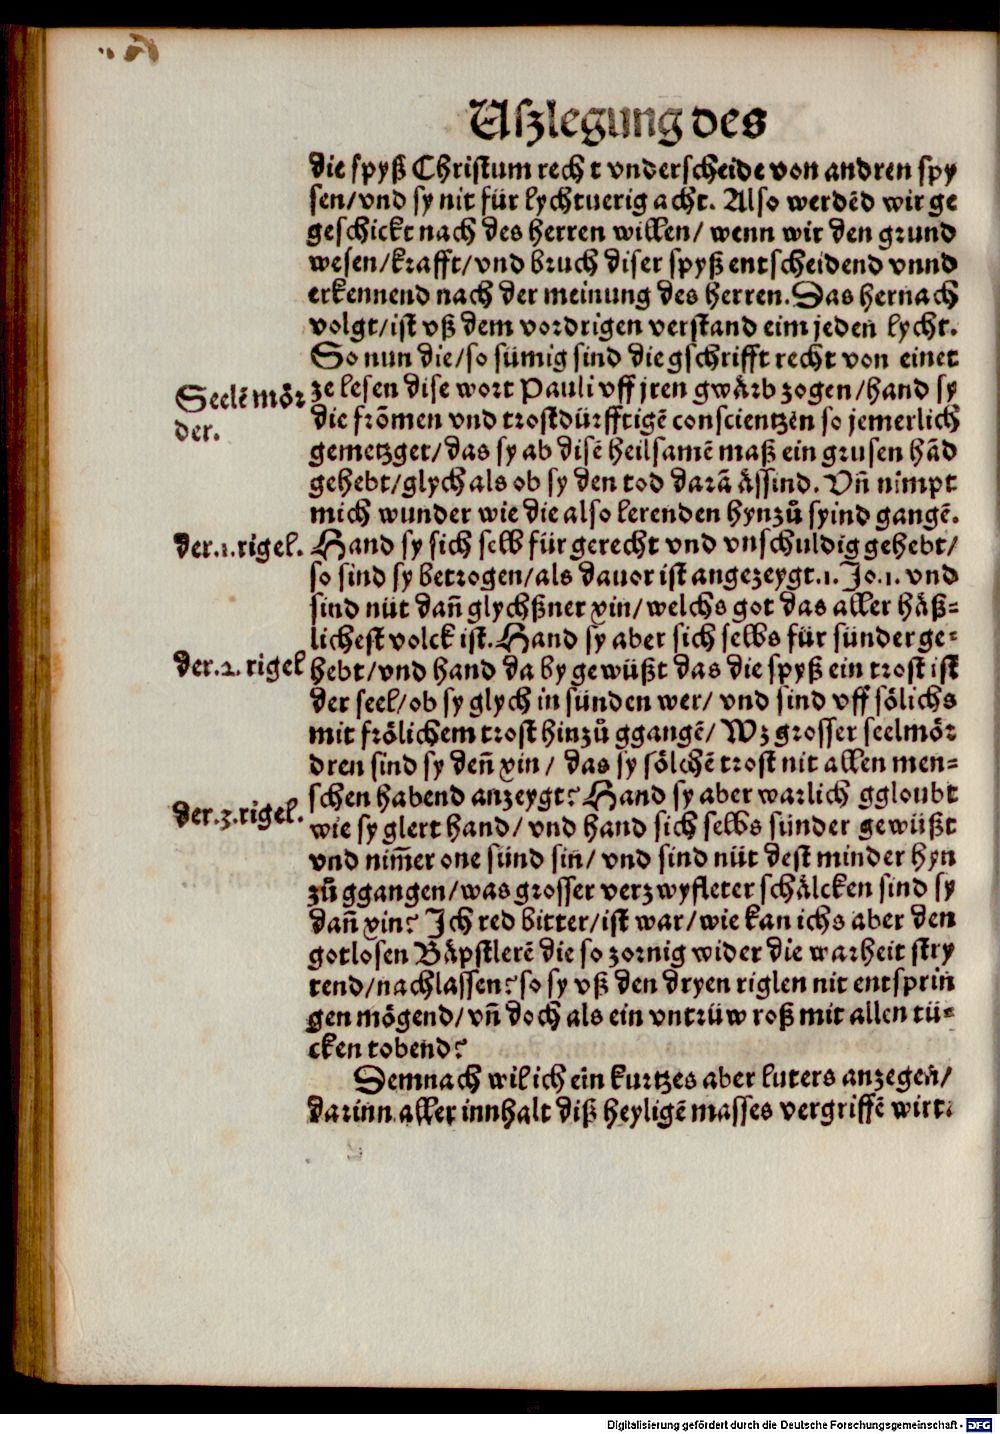 Uſzlegung des
die ſpyß Chriſtum recht vnderſcheide von andren ſpy
ſen/vnd ſy nit für lychtuerig acht. Alſo werdēd wir ge
geſchickt nach des herren willen/ wenn wir den grund
weſen/krafft/vnd bruch diſer ſpyß entſcheidend vnnd
erkennend nach der meinung des herren. Das hernach
volgt/iſt vß dem vordrigen verſtand eim jeden lycht.
So nun die/ſo ſümig ſind die gſchrifft recht von einet
Seelē mör
der.
ze leſen diſe wort Pauli vff jren gwärb zogen/hand ſy
die frōmen vnd troſtdürfftigē conſcientzen ſo jemerlich
gemetzget/das ſy ab diſē heilſamē maß ein gruſen hād
gehebt/glych als ob ſy den tod darā äſſind. Vn̄ nimpt
mich wunder wie die alſo lerenden hynzů ſyind gangē.
der.1.rigel.
Hand ſy ſich ſelb für gerecht vnd vnſchuldig gehebt/
ſo ſind ſy betrogen/als dauor iſt angezeygt.1. Jo.1. vnd
ſind nüt dan̄ glychßner xin/welchs got das aller häß-
licheſt volck iſt. Hand ſy aber ſich ſelbs für ſünder ge-
der.2. rigel
hebt/vnd hand da by gewüßt das die ſpyß ein troſt iſt
der ſeel/ob ſy glych in ſünden wer/ vnd ſind vff ſölichs
mit frölichem troſt hinzů ggangē/ Wz groſſer ſeelmör
dren ſind ſy den̄ xin/ das ſy ſölchē troſt nit allen men-
ſchen habend anzeygt? Hand ſy aber warlich ggloubt
der.3.rigel.
wie ſy glert hand/ vnd hand ſich ſelbs ſünder gewüßt
vnd nim̄er one ſünd ſin/ vnd ſind nüt deſt minder hyn
zů ggangen/was groſſer verzwyfleter ſchälcken ſind ſy
dan̄ xin? Ich red bitter/iſt war/wie kan ichs aber den
gotloſen Bäpſtlerē die ſo zornig wider die warheit ſtry
tend/nachlaſſen? ſo ſy vß den dryen riglen nit entſprin
gen mögend/vn̄ doch als ein vntrüw roß mit allen tü-
cken tobend?
Demnach wil ich ein kurtzes aber luters anzegen/
darinn aller innhalt diß heyligē maſſes vergriffē wirt.
Digitalisierung gefördert durch die Deutsche Forschungsgemeinschaft - DFG